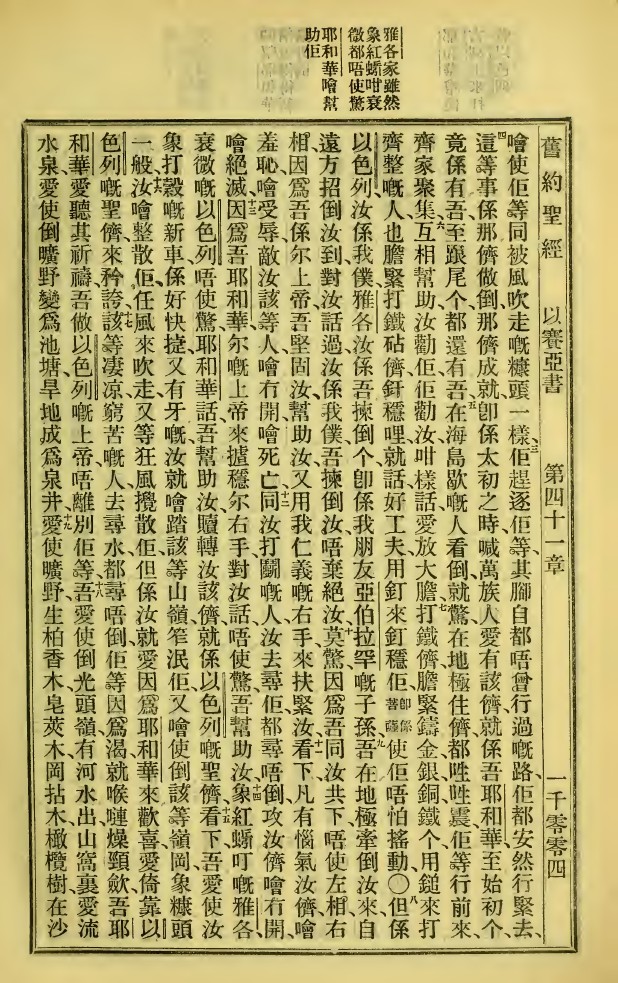 雅各家雖然
象紅蟻咁衰
微都唔使驚
耶和華噲幫
助佢
舊約聖經 以賽亞書 第四十一章 一千零零四
噲使佢等同被風吹走嘅糠頭一樣、三佢趕逐佢等、其腳自都唔曾行過嘅路、佢都安然行緊去、
四這等事係那儕做倒、那儕成就、卽係太初之時喊萬族人愛有該儕、就係吾耶和華、至始初个、
竟係有吾、至跟尾个都還有吾、五在海島歇嘅人看倒就驚、在地極住儕都甡甡震、佢等行前來、
齊家聚集、六互相幫助、汝勸佢佢勸汝、咁樣話、愛放大膽、七打鐵儕膽緊鑄金銀銅鐵个、用鎚來打
齊整嘅人、也膽緊打鐵砧儕、釬穩哩就話好工夫、用釘來釘穩佢卽係菩薩使佢唔怕搖動、〇八但係
以色列汝係我僕、雅各汝係吾揀倒个、卽係我朋友亞伯拉罕嘅子孫、九吾在地極牽倒汝來、自
遠方招倒汝到、對汝話過、汝係我僕、吾揀倒汝、唔棄絕汝、十莫驚、因爲吾同汝共下、唔使左相右
相、因爲吾係尔上帝、吾堅固汝、幫助汝、又用我仁義嘅右手來扶緊汝、十一看下凡有惱氣汝儕、噲
羞恥、噲受辱、敵汝該等人、噲冇開噲死亡、十二同汝打鬭嘅人、汝去尋佢都尋唔倒、攻汝儕噲冇開、
噲絕滅、十三因爲吾耶和華尔嘅上帝、來揸穩尔右手、對汝話、唔使驚、吾幫助汝、十四象紅蟻叮嘅雅各、
衰微嘅以色列、唔使驚、耶和華話、吾幫助汝、贖轉汝該儕、就係以色列嘅聖儕、十五看下吾愛使汝
象打穀嘅新車、係好快㨗又有牙嘅、汝就噲踏該等山嶺笮泯佢、又噲使倒該等嶺岡象糠頭
一般、十六汝噲整散佢、任風來吹走、又等狂風攪散佢、但係汝就愛因爲耶和華來歡喜、愛倚靠以
色列嘅聖儕來矜誇、十七該等淒凉窮苦嘅人、去尋水都尋唔倒、佢等因爲渴就喉嗹燥頸歛、吾耶
和華愛聽其祈禱、吾做以色列嘅上帝、唔離別佢等、十八吾愛使倒光頭嶺有河水出、山窩裏愛流
水泉、愛使倒曠野變爲池塘、旱地成爲泉井、十九愛使曠野、生柏香木、皂莢木、岡拈木、橄欖樹、在沙